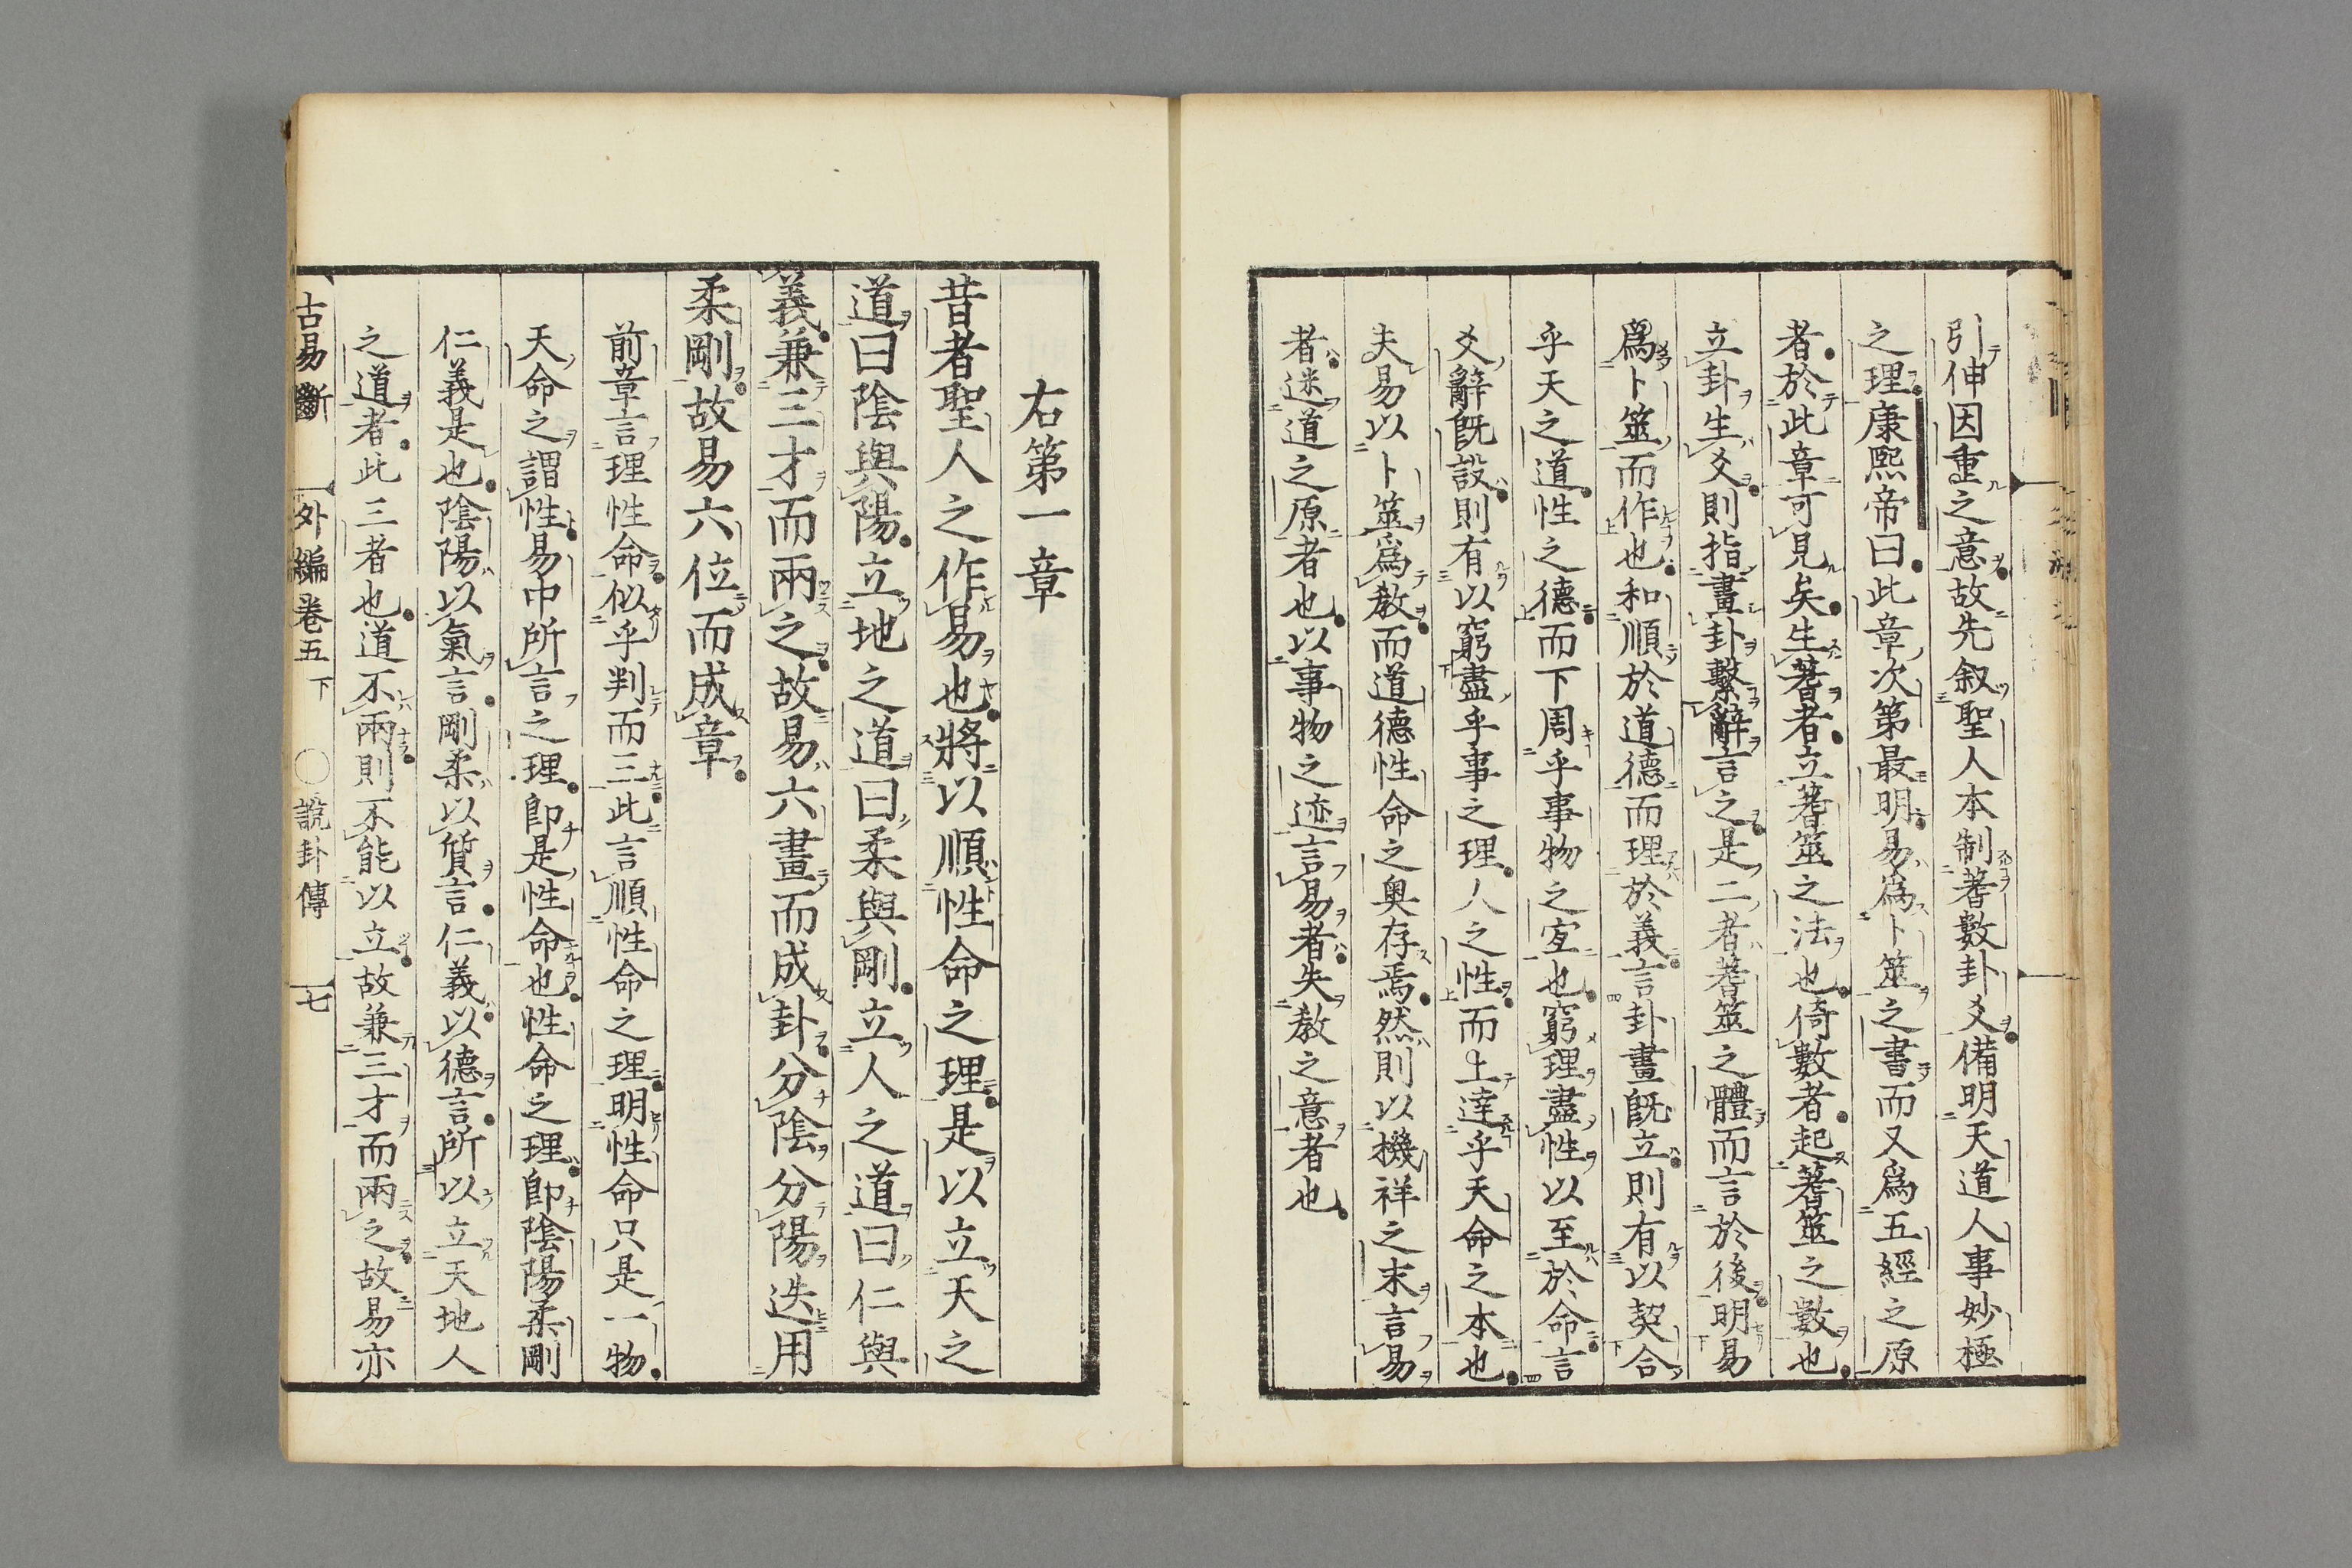 引伸因重之意故先叙聖人本制蓍數卦爻備明天道人事妙極
之理康熙帝曰此章次第最明易爲卜筮之書而又爲五經之原
者於此章可見矣生蓍者立蓍筮之法也倚數者起蓍筮之數也
立卦生爻則指畫卦繫辭言之是二者蓍筮之體而言於後明易
爲卜筮而作也和順於道德而理於義言卦畫旣立則有以契合
乎天之道性之德而下周乎事物之宜也窮理盡性以至於命言
爻辭旣設則有以窮盡乎事之理人之性而上達乎天命之本也
夫易以卜筮爲敎而道德性命之奥存焉然則以機祥之末言易
者迷道之原者也以事物之迹言易者失敎之意者也
右第一章
昔者聖人之作易也將以順性命之理是以立天之
道曰陰與陽立地之道曰柔與剛立人之道曰仁與
義兼三才而兩之故易六畫而成卦分陰分陽迭用
柔剛故易六位而成章
前章言理性命似乎判而三此言順性命之理明性命只是一物
天命之謂性易中所言之理卽是性命也性命之理卽陰陽柔剛
仁義是也陰陽以氣言剛柔以質言仁義以德言所以立天地人
之道者此三者也道不兩則不能以立故兼三才而兩之故易亦
古易斷 外編卷五下 ○說卦傳 七